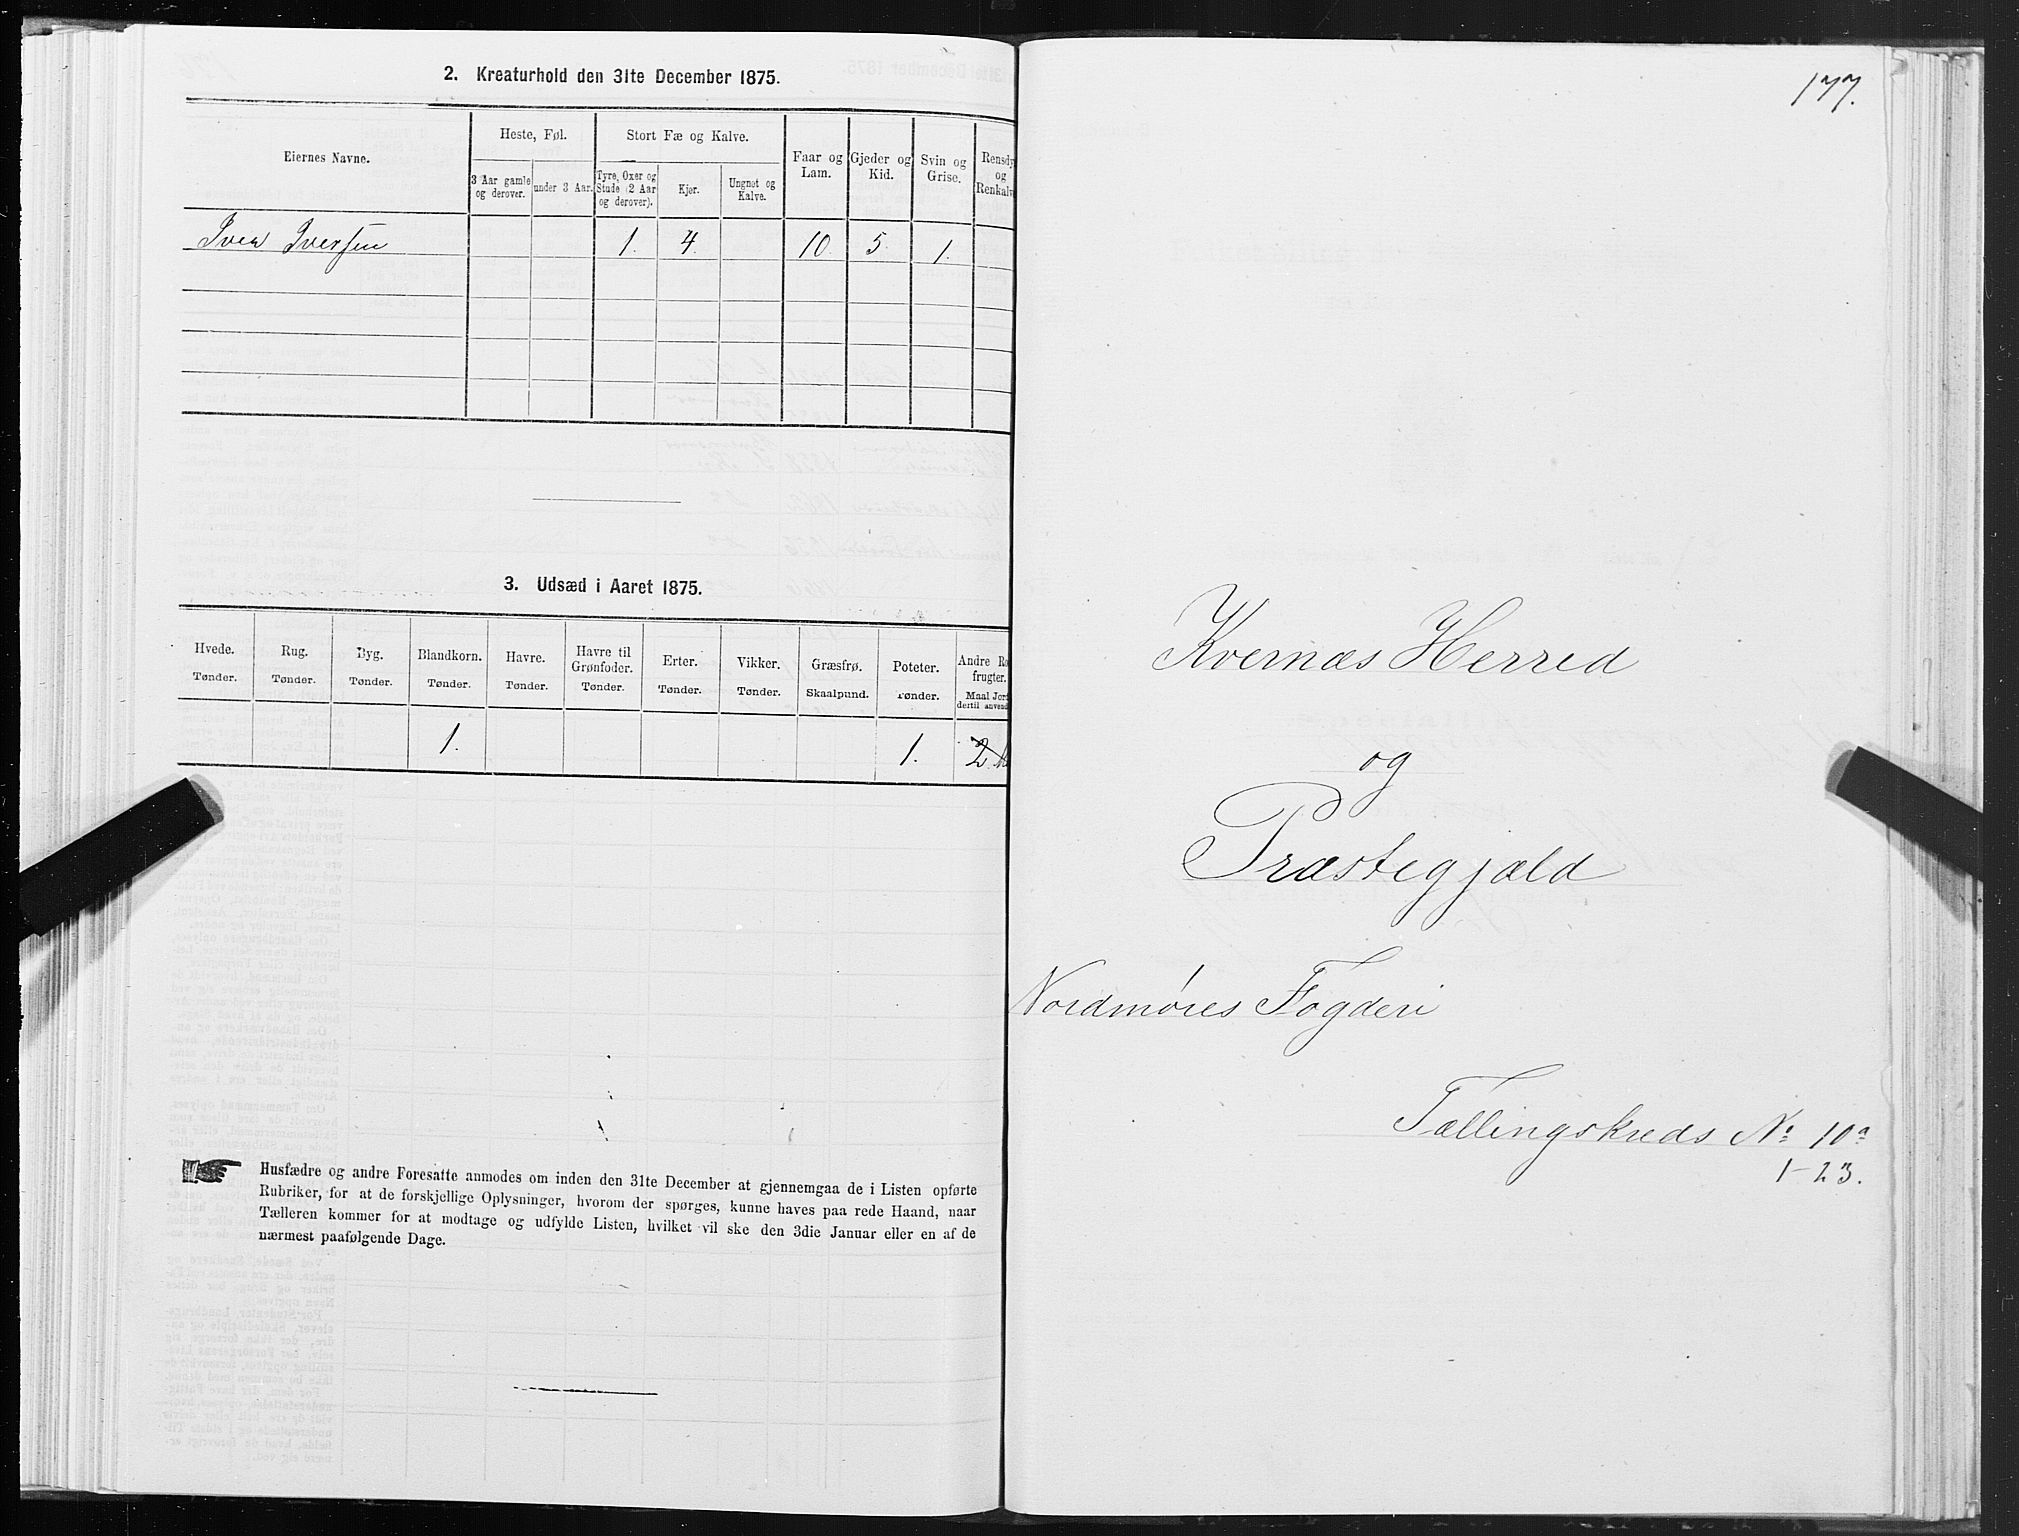 2. Kreaturhold den 31te December 1875.
Eiernes Navne.
Heste, Føl.
3 Aar gamle og derover.
under 3 Aar.
Stort Fæ og Kalve.
Tyre, Oxer og Stude (2 Aar og derover).
Kjør.
Ungnøt og Kalve.
Faar og Lam.
Gjeder og Kid.
Svin og Grise.
Rensdy og Renkalv
Iver Iversen 1. 4. 10 5. 1.
3. Udsæd i Aaret 1875.
Hvede. Rug. Byg. Blandkorn. Havre. Havre til Grønfoder. Erter. Vikker. Græsfrø. Poteter. Andre Ro frugter.
Tønder. Tønder. Tønder. Tønder. Tønder. Tønder. Tønder. Tønder. Skaalpund. Tønder. Maal Jord dertil anvend
1. 1. 2
Husfædre og andre Foresatte anmodes om inden den 31te December at gjennemgaa de i Listen opførte
Rubriker, for at de forskjellige Oplysninger, hvorom der spørges, kunne haves paa rede Haand, naar
Tælleren kommer for at modtage og udfylde Listen, hvilket vil ske den 3die Januar eller en af de
nærmest paafølgende Dage.
177.
Kvernæs Herred
og
Præstegjæld
Nordmøres Fogderi
Tællingskreds No 10a
1-23.